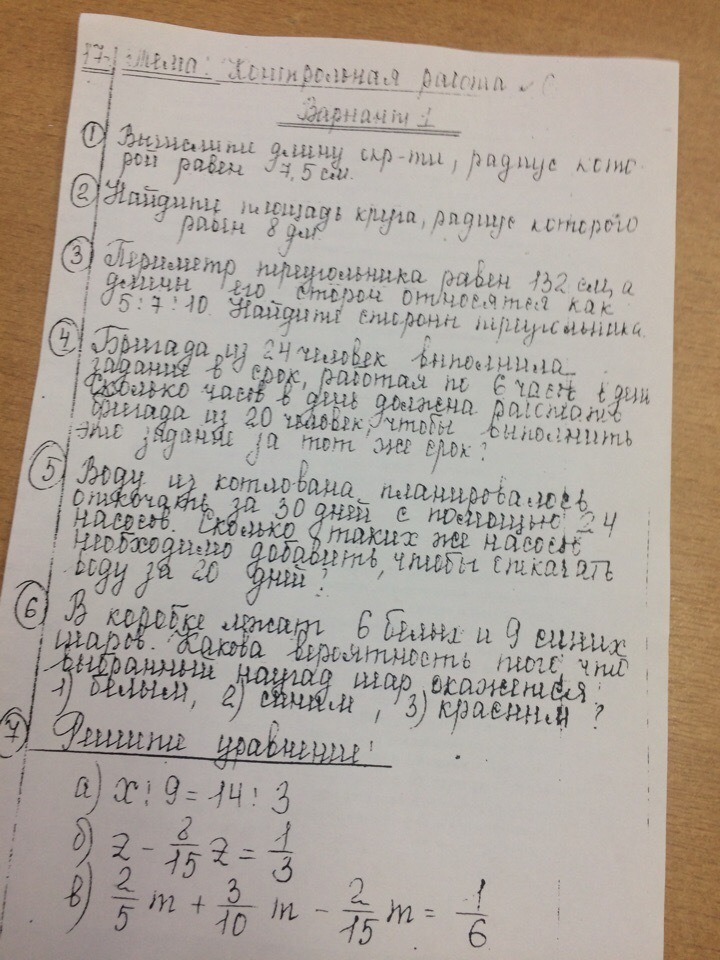 17. Тема: Контрольная работа №6
Вариант 1
① Вычислите длину окр-ти, радиус кото-
рой равен 7,5 см.
② Найдите площадь круга, радиус которого
равен 8 дм.
③ Периметр треугольника равен 132 см, а
длины его сторон относятся как
5:7:10. Найдите стороны треугольника.
④ Бригада из 24 человек выполнила
задание в срок, работая по 6 часов в день
Сколько часов в день должна работать
бригада из 20 человек, чтобы выполнить
это задание за тот же срок?
⑤ Воду из котлована планировалось
откачать за 30 дней с помощью 24
насосов. Сколько таких же насосов
необходимо добавить, чтобы откачать
воду за 20 дней?
⑥ В коробке лежат 6 белых и 9 синих
шаров. Какова вероятность того что
выбранный наугад шар окажется
1) белым, 2) синим, 3) красным?
⑦ Решите уравнение:
а) x : 9 = 14 : 3
б) z - 8/15 z = 1/3
в) 2/5 m + 3/10 m - 2/15 m = 1/6